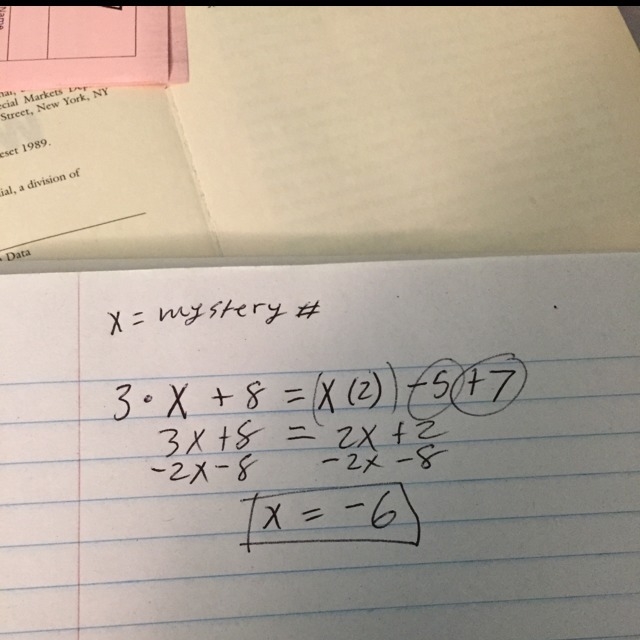 Name
cial Markets
Street, New York, NY
eset 1989.
ial, a division of
Data
x = mystery #
3 • x + 8 = (x (2)) - 5 + 7
3x + 8 = 2x + 2
-2x - 8 -2x - 8
x = -6